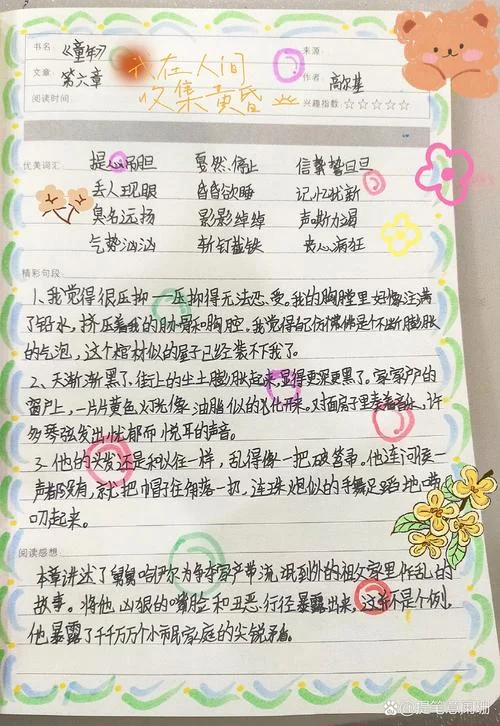 书名 《童年》 来源
文章: 第六章 作者: 高尔基
我在人间
收集黄昏
阅读时间 兴趣指数 ☆☆☆☆☆
优美词汇 提心吊胆 戛然停止 信誓誓旦旦
丢人现眼 昏昏欲睡 记忆犹新
臭名远扬 影影绰绰 声嘶力竭
气势汹汹 斩钉截铁 丧心病狂
精彩句段
1、我觉得很压抑——压抑得无法忍受。我的胸膛里好像注满
了铅水,挤压着我的肋骨和胸腔,我觉得自己仿佛是个不断膨胀
的气泡,这个棺材似的屋子已经装不下我了。
2、天渐渐黑了,街上的尘土膨胀起来,显得更深更黑了。家家户户的
窗户上,一片片黄色灯光像油脂似的
对面房子里奏着音乐,许
多琴弦发出忧郁而悦耳的声音。
3、他的头发还是和以往一样,乱得像一把破笤帚。他连问候一
声都没有,就把帽子往角落一扔,连珠炮似的手舞足蹈地唠
叨起来。
阅读感想
本章讲述了舅舅
为争夺家产带
的祖父家里作乱的
故事。将他凶狠的嘴脸和丑恶行径暴露出来,这并不是个例,
他暴露了千千万万个小市民家庭的尖锐矛盾。
@提笔意阑珊